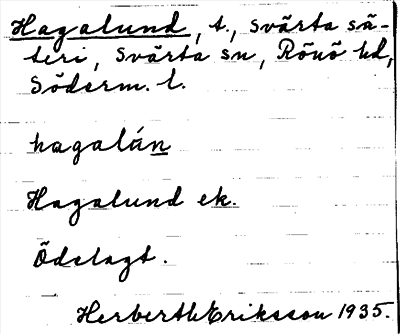 Hagalund, t., Svärta sä-
teri, Svärta sn, Rönö hd,
Söderm. l.
hagalán
Hagalund ek.
Ödelagt.
Herberth Eriksson 1935.